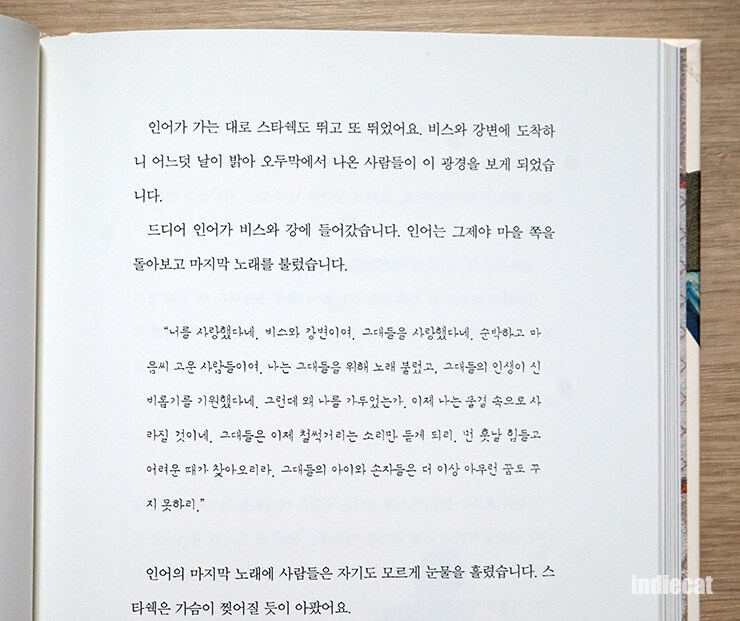 인어가 가는 대로 스타쉑도 뛰고 또 뛰었어요. 비스와 강변에 도착하
니 어느덧 날이 밝아 오두막에서 나온 사람들이 이 광경을 보게 되었습
니다.
드디어 인어가 비스와 강에 들어갔습니다. 인어는 그제야 마을 쪽을
돌아보고 마지막 노래를 불렀습니다.
“너를 사랑했다네. 비스와 강변이여. 그대들을 사랑했다네. 순박하고 마
음씨 고운 사람들이여. 나는 그대들을 위해 노래 불렀고, 그대들의 인생이 신
비롭기를 기원했다네. 그런데 왜 나를 가두었는가. 이제 나는 물결 속으로 사
라질 것이네. 그대들은 이제 철썩거리는 소리만 듣게 되리. 먼 훗날 힘들고
어려운 때가 찾아오리라. 그대들의 아이와 손자들은 더 이상 아무런 꿈도 꾸
지 못하리.”
인어의 마지막 노래에 사람들은 자기도 모르게 눈물을 흘렸습니다. 스
타쉑은 가슴이 찢어질 듯이 아팠어요.
indiecat